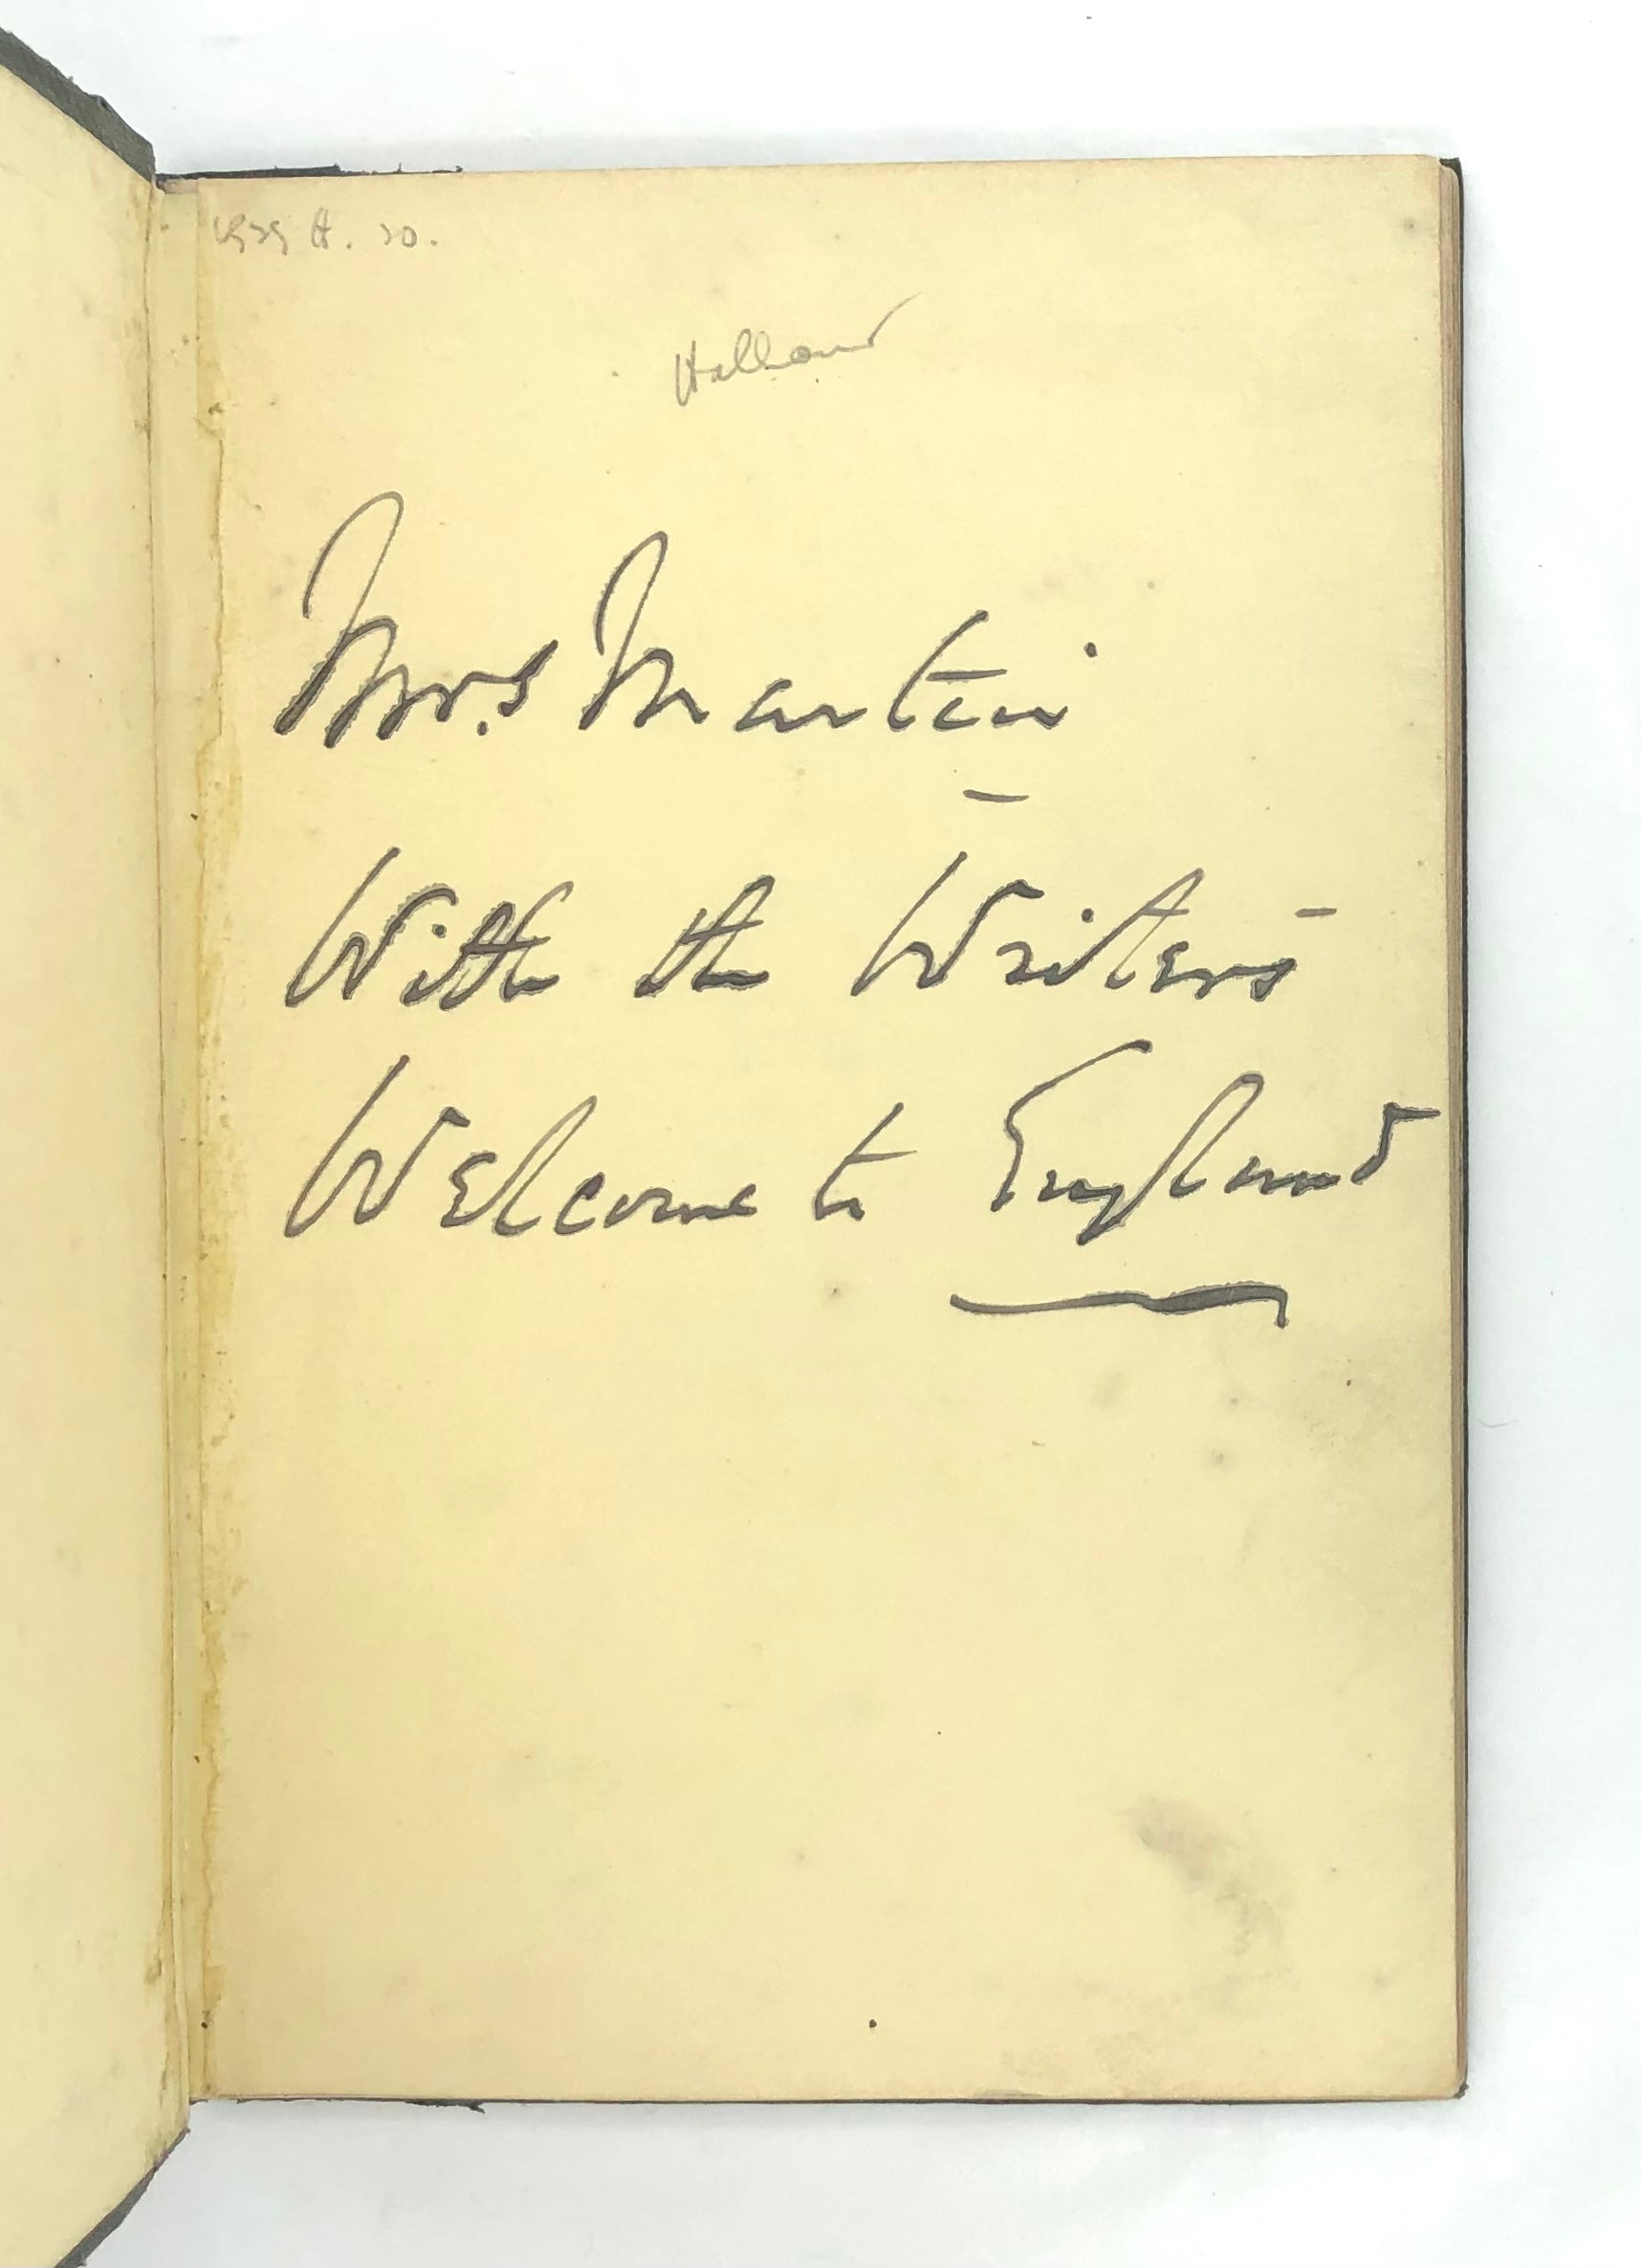 H. 20.
Holland
Mrs Martin
With the Writer's
Welcome to England